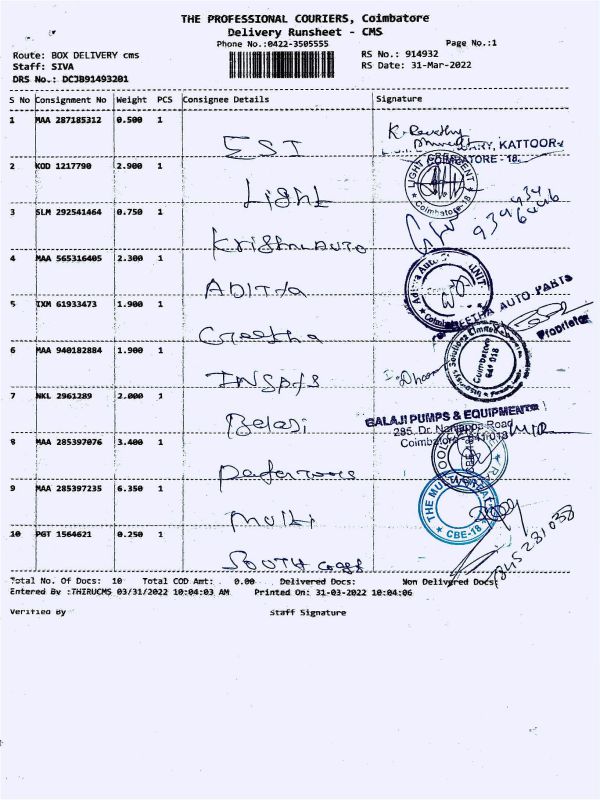 THE PROFESSIONAL COURIERS, Coimbatore
Delivery Runsheet - CMS
Phone No.:0422-3505555
Page No.:1
Route: BOX DELIVERY cms
RS No.: 914932
Staff: SIVA
RS Date: 31-Mar-2022
DRS No.: DCJB91493201
S No Consignment No Weight PCS Consignee Details Signature
1 MAA 287185312 0.500 1
EST
KATTOOR
COIMBATORE - 18.
2 KOD 1217790 2.900 1
Light
LIGHT
Coimbatore-18
3 SLM 292541464 0.750 1
Krishna AUTO
4 MAA 565316405 2.300 1
ADITYA
UNIT
5 TXM 61933473 1.900 1
Geetha
AUTO PARTS
Proprietor
6 MAA 940182884 1.900 1
INSPXS
Coimbatore
641 018
7 NKL 2961289 2.000 1
Balaji
BALAJI PUMPS & EQUIPMENTS
285, Dr. Nanjappa Road
Coimbatore - 641 018
8 MAA 285397076 3.400 1
9 MAA 285397235 6.350 1
Multi
THE MULTI
CBE-18
10 PGT 1564621 0.250 1
SOUTH
Total No. Of Docs: 10 Total COD Amt: 0.00 Delivered Docs: Non Delivered Docs:
Entered By :THIRUCMS 03/31/2022 10:04:03 AM Printed On: 31-03-2022 10:04:06
Verified By Staff Signature